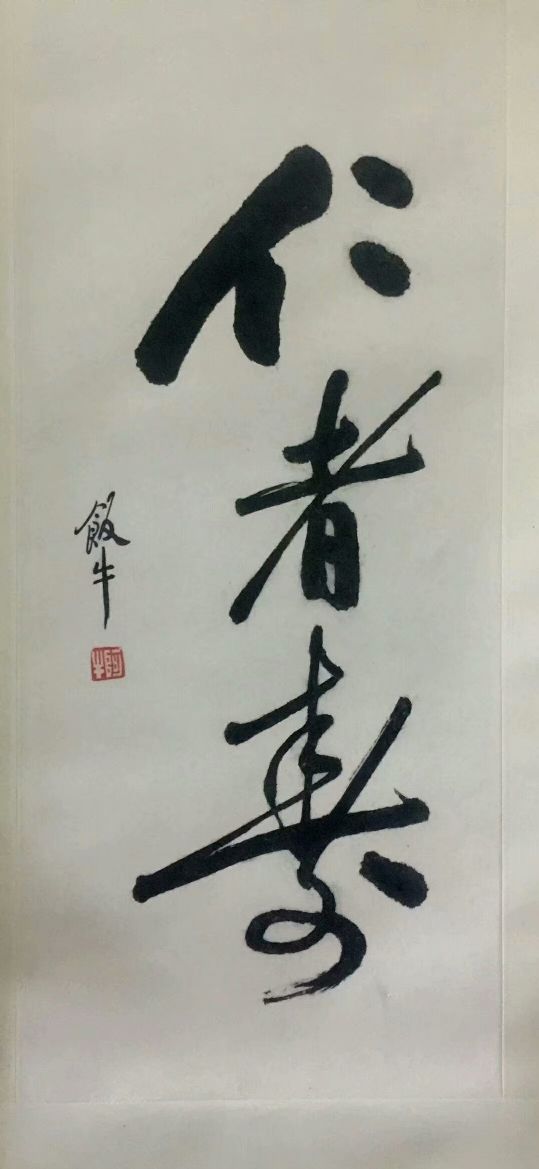 仁者壽
飯牛